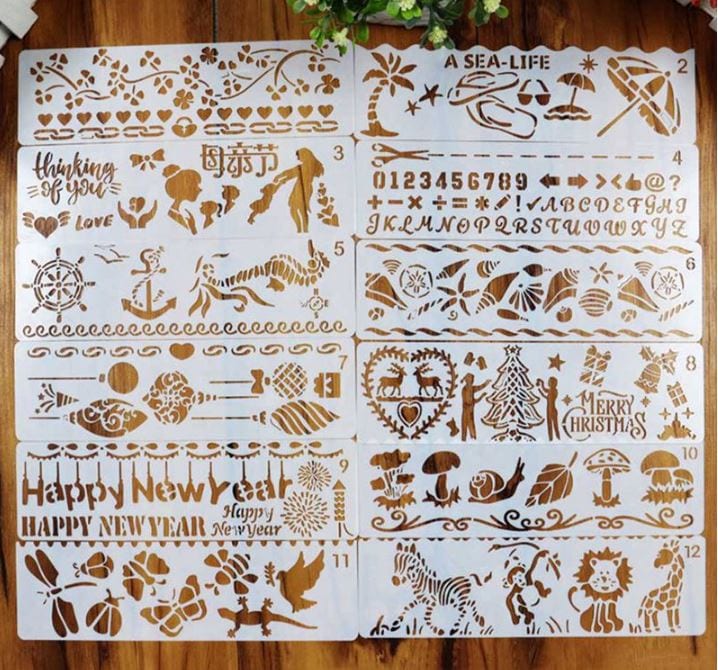 A SEA-LIFE
2
thinking
of you
LOVE
母亲节
3
4
0123456789
@?
+-×÷=*!✓ABCDEFGHI
JKLMNOPQRSTUVWXYZ
5
6
7
8
MERRY
CHRISTMAS
9
Happy New Year
HAPPY NEW YEAR
Happy
New Year
10
11
12